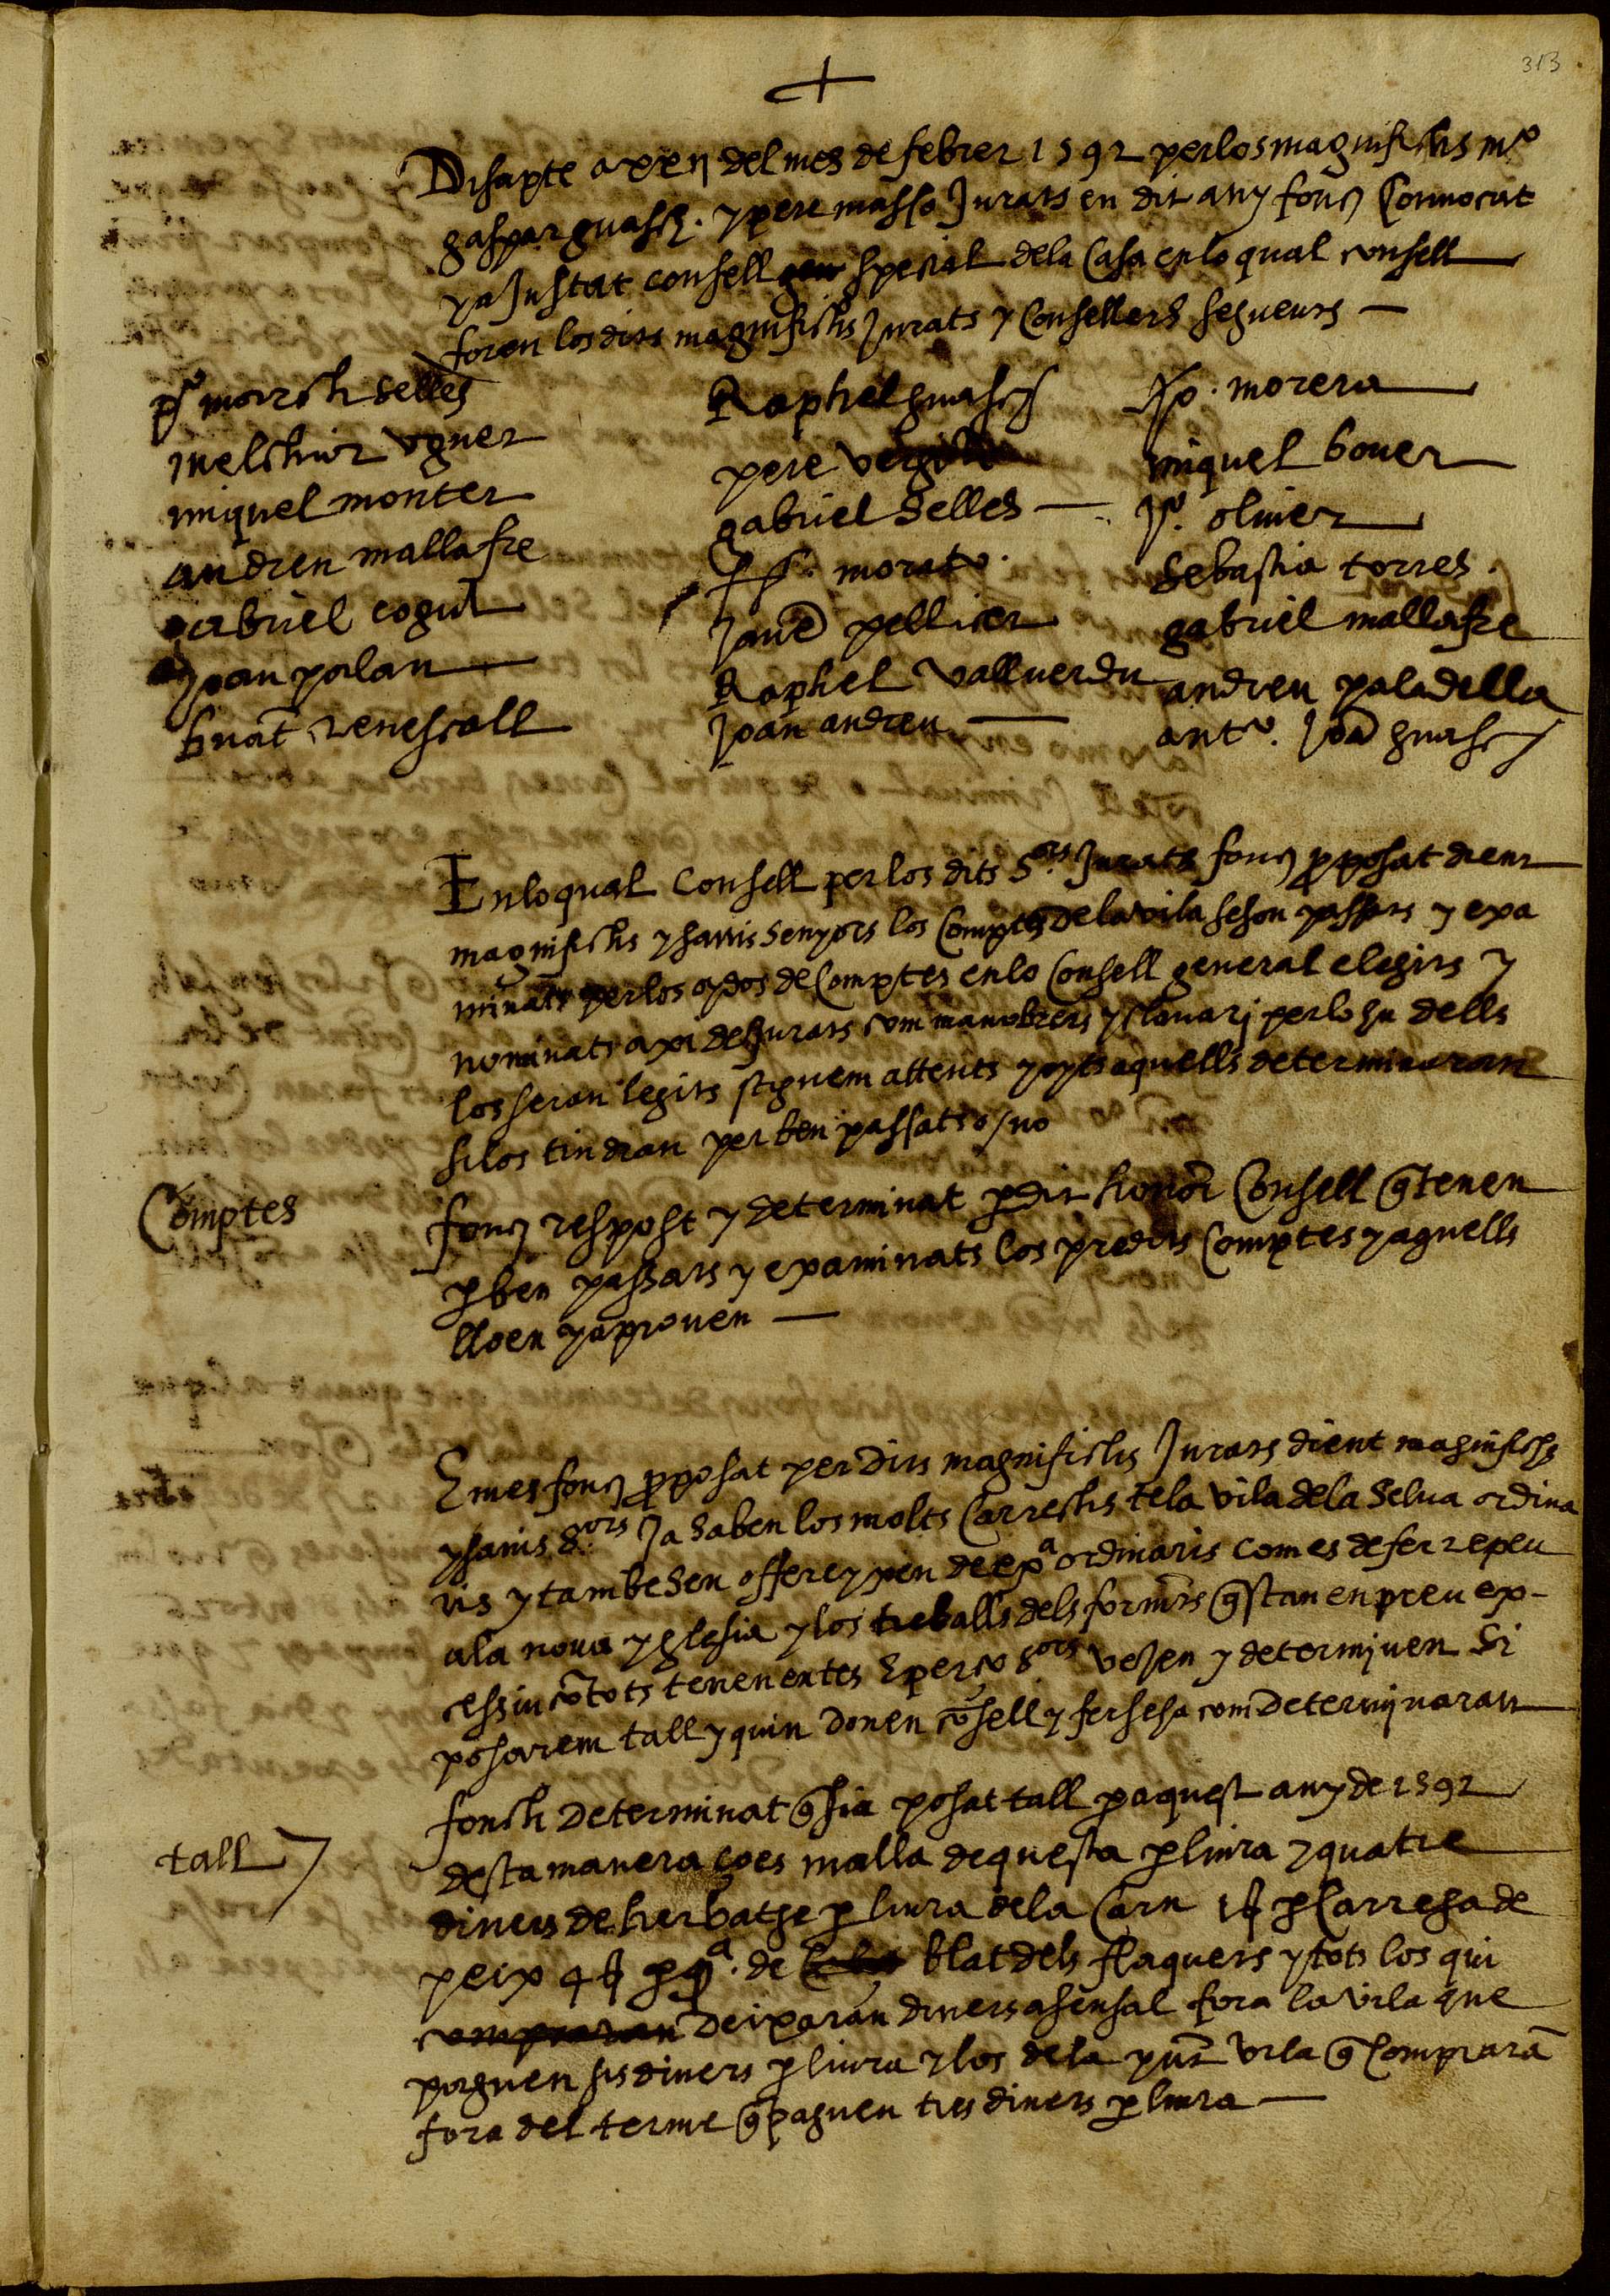 313
Disapte a xxij del mes de febrer 1592 per los magnifichs mº
gaspar guasch. y pere masso Jurats en dit any fonch Conuocat
y aJustat consell spesial dela Casa en lo qual consell
foren los dits magnifichs Jurats y Consellers seguents
march selles
melchior oguer
miquel monter
andreu mallafre
gabriel cogul
Joan palau
bnat renescall
Raphel guasch
pere
gabriel selles
morato
Jaue pellicer
Raphel vallverdu
Joan andreu
Xpo. morera
miquel bouer
Jº. oliuer
Sebastia torres.
gabriel mallafre
andreu paladella
antº. Joã guasch
En lo qual Consell per los dits S.ors Jurats fonch pposat dient
magnifichs y sauis senyors los Comptes de la vila se son passats y exa
minats per los oydos de Comptes en lo Consell general elegits y
nominats axi dels Jurats com manobrers y clauari per lo qu dells
los seran legits stiguem attents y oyts aquells determinaran
si los tindran per ben passats o / no
Comptes
fonch respost y determinat p dit honor Consell q tenen
p ben passats y examinats los predits Comptes y aquells
lloen y aprouen
E mes fonch pposat per dits magnifichs Jurats dient magnifichs
y sauis S.ors Ja saben los molts Carrechs te la vila dela Selua ordina
ris y tambe sen offereyxen de exª ordinaris com es de fer repeu
a la noua yglesia y los treballs dels forments q stan en preu ex-
cessiu cõ tots tenen entes E per ço S.ors veJen y determinen Si
posarem tall y quin donen cõsell y ferse ha com determinaran
tall
fonch determinat q sia posat tall p aquest any de 1592
desta manera ço es malla de questa p liura y quatre
diners de herbatge p liura dela Carn 1 ß p Carrega de
peix 4 ß p qª. de blat dels flaquers y tots los qui
deixaran diners a sensal fora la vila que
paguen sis diners p liura y los de la pnt vila q Comprarã
fora del terme q paguen tres diners p liura